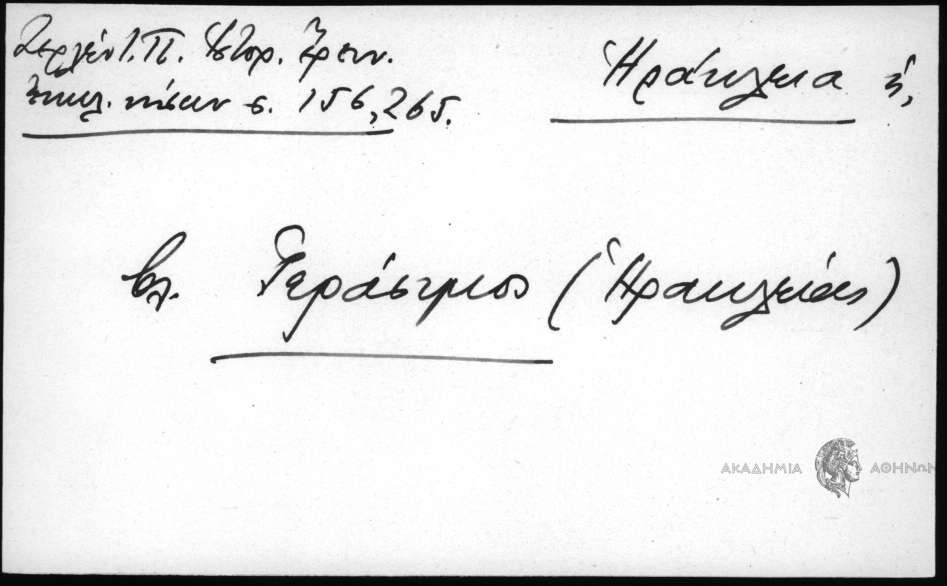 Ζερλέντ. Π. Ἱστορ. Ἔρευν.
Ἐκκλ. νήσων σ. 156, 265.
Ἡράκλεια ἡ,
βλ. Γεράσιμος (Ἡρακλείας)
ΑΚΑΔΗΜΙΑ ΑΘΗΝΩΝ